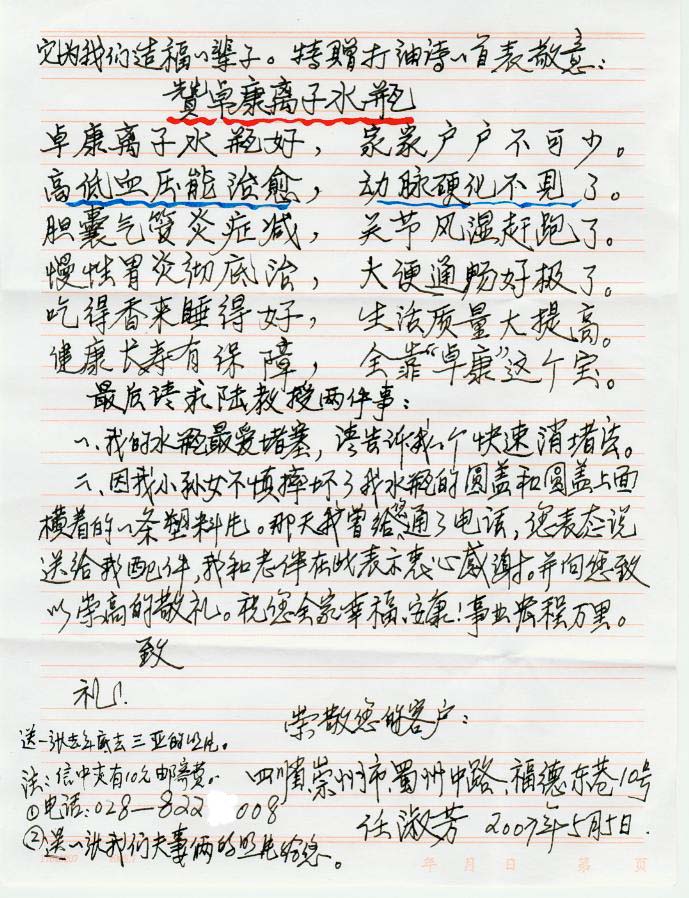 它为我们造福一辈子。特赠打油诗一首表敬意:
赞卓康离子水瓶
卓康离子水瓶好, 家家户户不可少。
高低血压能治愈, 动脉硬化不见了。
胆囊气管炎症减, 关节风湿赶跑了。
慢性胃炎彻底治, 大便通畅好极了。
吃得香来睡得好, 生活质量大提高。
健康长寿有保障, 全靠“卓康”这个宝。
最后请求陆教授两件事:
一、我的水瓶最爱堵塞,请告诉我一个快速消堵法。
二、因我小孙女不慎摔坏了我水瓶的圆盖和圆盖上面
横着的一条塑料片。那天我曾给您通了电话,您表态说
送给我配件,我和老伴在此表示衷心感谢!并向您致
以崇高的敬礼。祝您全家幸福、安康!事业宏程万里。
致
礼!
崇敬您的客户:
送一张去年底去三亚的照片。
注:信中夹有10元邮寄费。
四川崇州市蜀州中路福德东巷10号
①电话:028—822 008
任淑芳 2007年5月5日.
②送一张我们夫妻俩的照片给您。
年 月 日 第 页